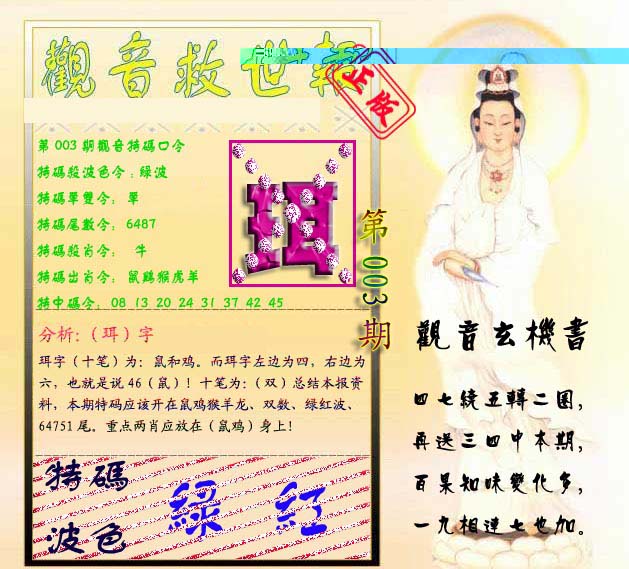 觀音救世報
正版
第 003 期觀音特碼口令
特碼殺波色令：綠波
特碼單雙令： 單
特碼尾數令： 6487
特碼殺肖令： 牛
特碼出肖令： 鼠鷄猴虎羊
特中碼令： 08 13 20 24 31 37 42 45
珥
第003期
分析:（珥）字
珥字（十笔）为：鼠和鸡。而珥字左边为四，右边为
六，也就是说 46（鼠）！十笔为:（双）总结本报资
料，本期特码应该开在鼠鸡猴羊龙、双数、绿红波、
64751 尾。重点两肖应放在（鼠鸡）身上!
特碼
波色
綠 紅
觀音玄機書
四七繞五轉二圈，
再送三四中本期，
百果知味變化多，
一九相連七也加。